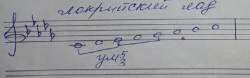 локрийский лад
ум 5/3